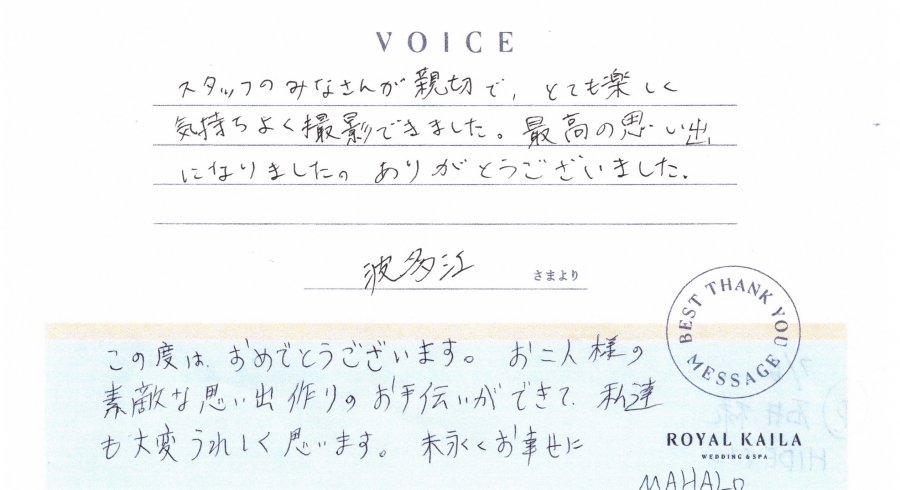 VOICE
スタッフのみなさんが親切で、とても楽しく
気持ちよく撮影できました。最高の思い出
になりました。ありがとうございました。
波多江 さまより
BEST THANK YOU MESSAGE
この度は、おめでとうございます。お二人様の
素敵な思い出作りのお手伝いができて、私達
も大変うれしく思います。末永くお幸せに
ROYAL KAILA
WEDDING & SPA
MAHALO